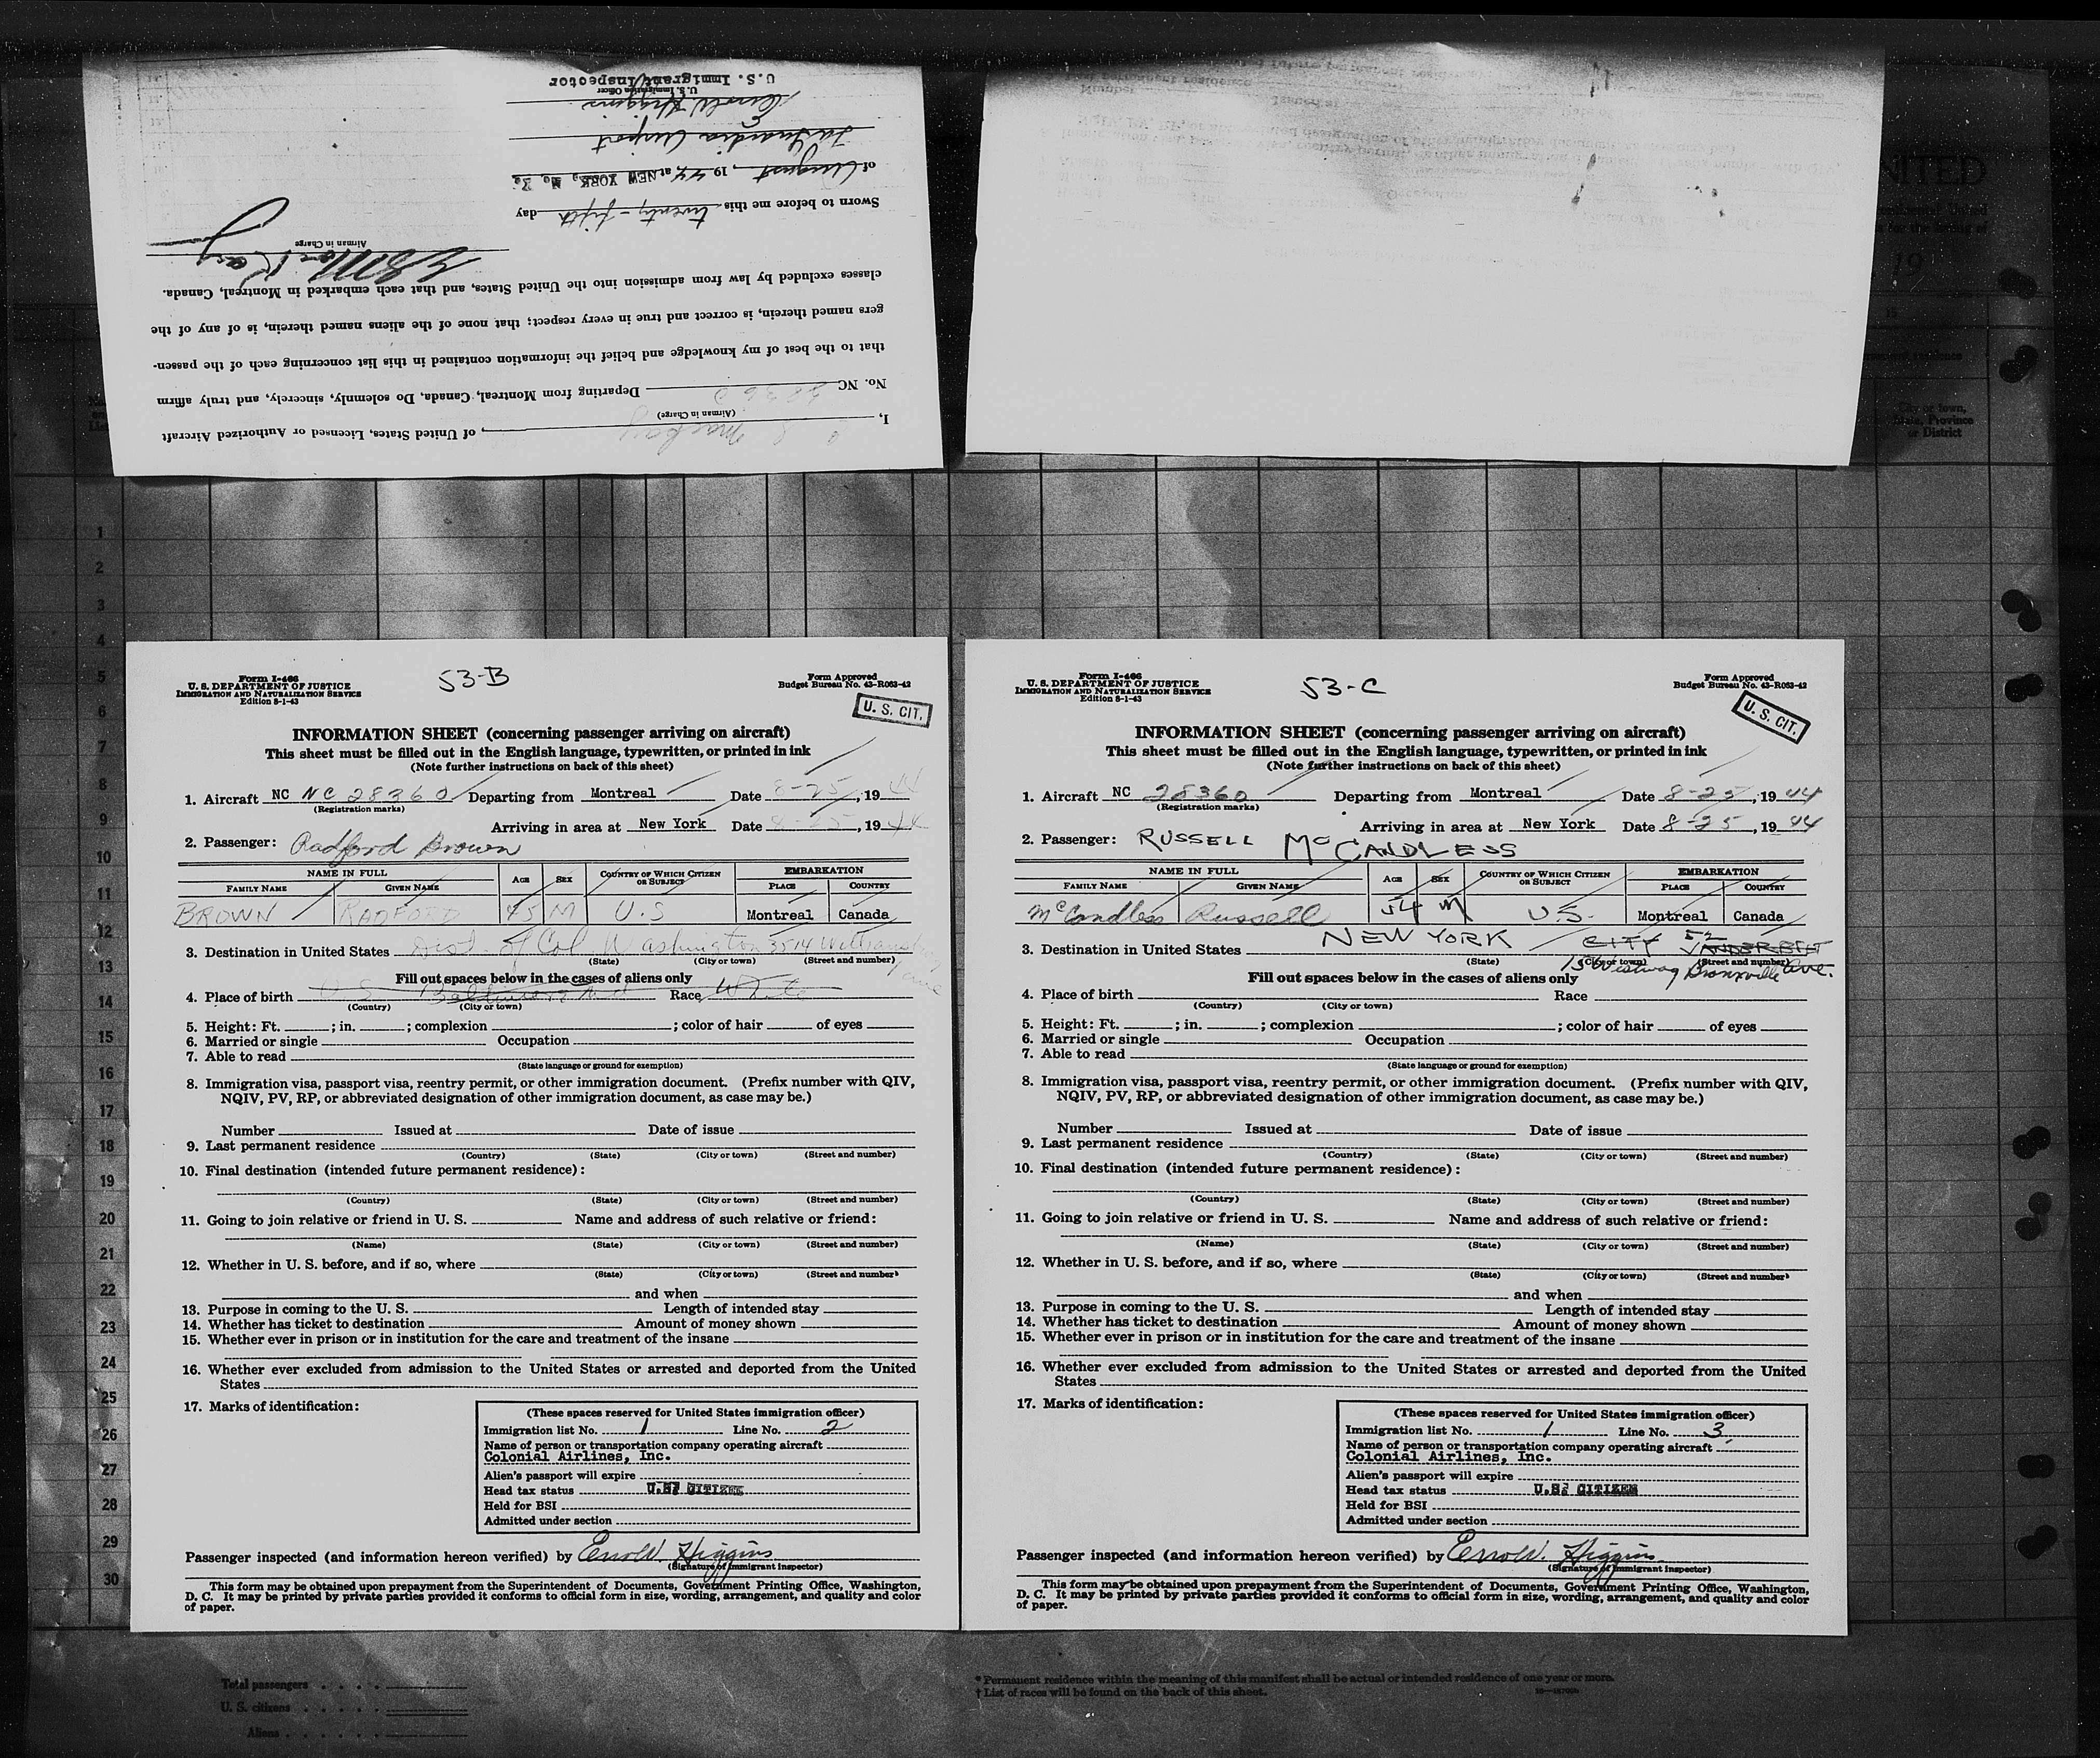 U.S. Immigrant Inspector
U.S. Immigration Officer
Errold Higgins
LaGuardia Airport
of August, 1944 at NEW YORK, N. Y.
Sworn to before me this twenty-fifth day
Airman in Charge
classes excluded by law from admission into the United States, and that each embarked in Montreal, Canada.
gers named therein, is correct and true in every respect; that none of the aliens named therein, is of any of the
that to the best of my knowledge and belief the information contained in this list concerning each of the passen-
No. NC 28360 Departing from Montreal, Canada, Do solemnly, sincerely, and truly affirm
(Airman in Charge)
I, MacKay, of United States, Licensed or Authorized Aircraft
NITED
19
City or town,
State, Province
or District
1
2
3
4
5
6
7
8
9
10
11
12
13
14
15
16
17
18
19
20
21
22
23
24
25
26
27
28
29
30
Form I-466
U. S. DEPARTMENT OF JUSTICE
IMMIGRATION AND NATURALIZATION SERVICE
Edition 8-1-43
53-B
Form Approved
Budget Bureau No. 43-R063-42
U. S. CIT.
INFORMATION SHEET (concerning passenger arriving on aircraft)
This sheet must be filled out in the English language, typewritten, or printed in ink
(Note further instructions on back of this sheet)
1. Aircraft NC NC 28360 Departing from Montreal Date 8-25, 1944
(Registration marks)
Arriving in area at New York Date 8-25, 1944
2. Passenger: Radford Brown
NAME IN FULL AGE SEX COUNTRY OF WHICH CITIZEN OR SUBJECT EMBARKATION
FAMILY NAME GIVEN NAME PLACE COUNTRY
BROWN RADFORD 45 M U.S Montreal Canada
3. Destination in United States Dist. of Col. Washington 3514 Williamsburg
(State) (City or town) (Street and number)
Fill out spaces below in the cases of aliens only
4. Place of birth U S Baltimore Md Race White
(Country) (City or town)
5. Height: Ft. ; in. ; complexion ; color of hair of eyes
6. Married or single Occupation
7. Able to read
(State language or ground for exemption)
8. Immigration visa, passport visa, reentry permit, or other immigration document. (Prefix number with QIV,
NQIV, PV, RP, or abbreviated designation of other immigration document, as case may be.)
Number Issued at Date of issue
9. Last permanent residence
(Country) (State) (City or town) (Street and number)
10. Final destination (intended future permanent residence):
(Country) (State) (City or town) (Street and number)
11. Going to join relative or friend in U. S. Name and address of such relative or friend:
(Name) (State) (City or town) (Street and number)
12. Whether in U. S. before, and if so, where
(State) (City or town) (Street and number)
and when
13. Purpose in coming to the U. S. Length of intended stay
14. Whether has ticket to destination Amount of money shown
15. Whether ever in prison or in institution for the care and treatment of the insane
16. Whether ever excluded from admission to the United States or arrested and deported from the United
States
17. Marks of identification:
(These spaces reserved for United States immigration officer)
Immigration list No. 1 Line No. 2
Name of person or transportation company operating aircraft
Colonial Airlines, Inc.
Alien's passport will expire
Head tax status U.S. CITIZEN
Held for BSI
Admitted under section
Passenger inspected (and information hereon verified) by Errold Higgins
(Signature of immigrant inspector)
This form may be obtained upon prepayment from the Superintendent of Documents, Government Printing Office, Washington,
D. C. It may be printed by private parties provided it conforms to official form in size, wording, arrangement, and quality and color
of paper.
Form I-466
U. S. DEPARTMENT OF JUSTICE
IMMIGRATION AND NATURALIZATION SERVICE
Edition 8-1-43
53-C
Form Approved
Budget Bureau No. 43-R063-42
U. S. CIT.
INFORMATION SHEET (concerning passenger arriving on aircraft)
This sheet must be filled out in the English language, typewritten, or printed in ink
(Note further instructions on back of this sheet)
1. Aircraft NC 28360 Departing from Montreal Date 8-25, 1944
(Registration marks)
Arriving in area at New York Date 8-25, 1944
2. Passenger: RUSSELL McCANDLESS
NAME IN FULL AGE SEX COUNTRY OF WHICH CITIZEN OR SUBJECT EMBARKATION
FAMILY NAME GIVEN NAME PLACE COUNTRY
McCandless Russell 54 M U.S. Montreal Canada
3. Destination in United States NEW YORK CITY 52 VANDERBILT
(State) (City or town) (Street and number)
15 Westway Bronxville Ave.
Fill out spaces below in the cases of aliens only
4. Place of birth Race
(Country) (City or town)
5. Height: Ft. ; in. ; complexion ; color of hair of eyes
6. Married or single Occupation
7. Able to read
(State language or ground for exemption)
8. Immigration visa, passport visa, reentry permit, or other immigration document. (Prefix number with QIV,
NQIV, PV, RP, or abbreviated designation of other immigration document, as case may be.)
Number Issued at Date of issue
9. Last permanent residence
(Country) (State) (City or town) (Street and number)
10. Final destination (intended future permanent residence):
(Country) (State) (City or town) (Street and number)
11. Going to join relative or friend in U. S. Name and address of such relative or friend:
(Name) (State) (City or town) (Street and number)
12. Whether in U. S. before, and if so, where
(State) (City or town) (Street and number)
and when
13. Purpose in coming to the U. S. Length of intended stay
14. Whether has ticket to destination Amount of money shown
15. Whether ever in prison or in institution for the care and treatment of the insane
16. Whether ever excluded from admission to the United States or arrested and deported from the United
States
17. Marks of identification:
(These spaces reserved for United States immigration officer)
Immigration list No. 1 Line No. 3
Name of person or transportation company operating aircraft
Colonial Airlines, Inc.
Alien's passport will expire
Head tax status U.S. CITIZEN
Held for BSI
Admitted under section
Passenger inspected (and information hereon verified) by Errold Higgins
(Signature of immigrant inspector)
This form may be obtained upon prepayment from the Superintendent of Documents, Government Printing Office, Washington,
D. C. It may be printed by private parties provided it conforms to official form in size, wording, arrangement, and quality and color
of paper.
Total passengers . . . .
U. S. citizens . . . . .
Aliens . . . . .
* Permanent residence within the meaning of this manifest shall be actual or intended residence of one year or more.
† List of races will be found on the back of this sheet.